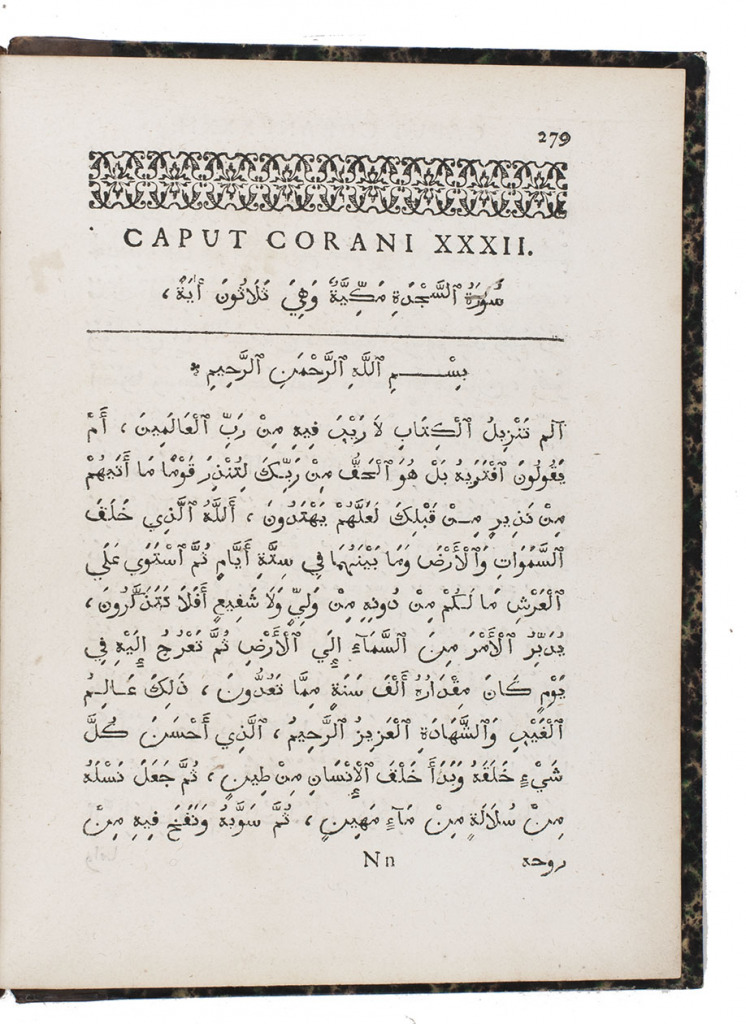 279
CAPUT CORANI XXXII.
سُورَةُ ٱلسَّجْدَةِ مَكِّيَّةٌ وَهِيَ ثَلَاثُونَ أَيَةً ،
بِسْــــمِ ٱللَّهِ ٱلرَّحْمَنِ ٱلرَّحِيمِ *
آلم تَنْزِيلُ ٱلْكِتَابِ لَا رَيْبَ فِيهِ مِنْ رَبِّ ٱلْعَالَمِينَ ، أَمْ
يَقُولُونَ ٱفْتَرَيهُ بَلْ هُوَ ٱلْحَقُّ مِنْ رَبِّكَ لِتُنْذِرَ قَوْمًا مَا أَتَيهُمْ
مِنْ نَذِيرٍ مِــنْ قَبْلِكَ لَعَلَّهُمْ يَهْتَدُونَ ، أَللَّهُ ٱلَّذِي خَلَقَ
ٱلسَّمَوَاتِ وَٱلْأَرْضَ وَمَا بَيْنَهُمَا فِي سِتَّةِ أَيَّامٍ ثُمَّ ٱسْتَوَي عَلَي
ٱلْعَرْشِ مَا لَكُمْ مِنْ دُونِهِ مِنْ وَلِيٍّ وَلَا شَفِيعٍ أَفَلَا تَتَذَكَّرُونَ ،
يُدَبِّرُ ٱلْأَمْرَ مِنَ ٱلسَّمَآءِ إِلَي ٱلْأَرْضِ ثُمَّ تَعْرُجُ إِلَيْهِ فِي
يَوْمٍ كَانَ مِقْدَارُهُ أَلْفَ سَنَةٍ مِمَّا تَعُدُّونَ ، ذَلِكَ عَـالِـمُ
ٱلْغَيْبِ وَٱلشَّهَادَةِ ٱلْعَزِيزُ ٱلرَّحِيمُ ، ٱلَّذِي أَحْسَنَ كُلَّ
شَيْءٍ خَلَقَهُ وَبَدَأَ خَلْقَ ٱلْإِنْسَانِ مِنْ طِينٍ ، ثُمَّ جَعَلَ نَسْلَهُ
مِنْ سُلَالَةٍ مِنْ مَآءٍ مَهِينٍ ، ثُمَّ سَوَّيهُ وَنَفَخَ فِيهِ مِنْ
روحه
Nn